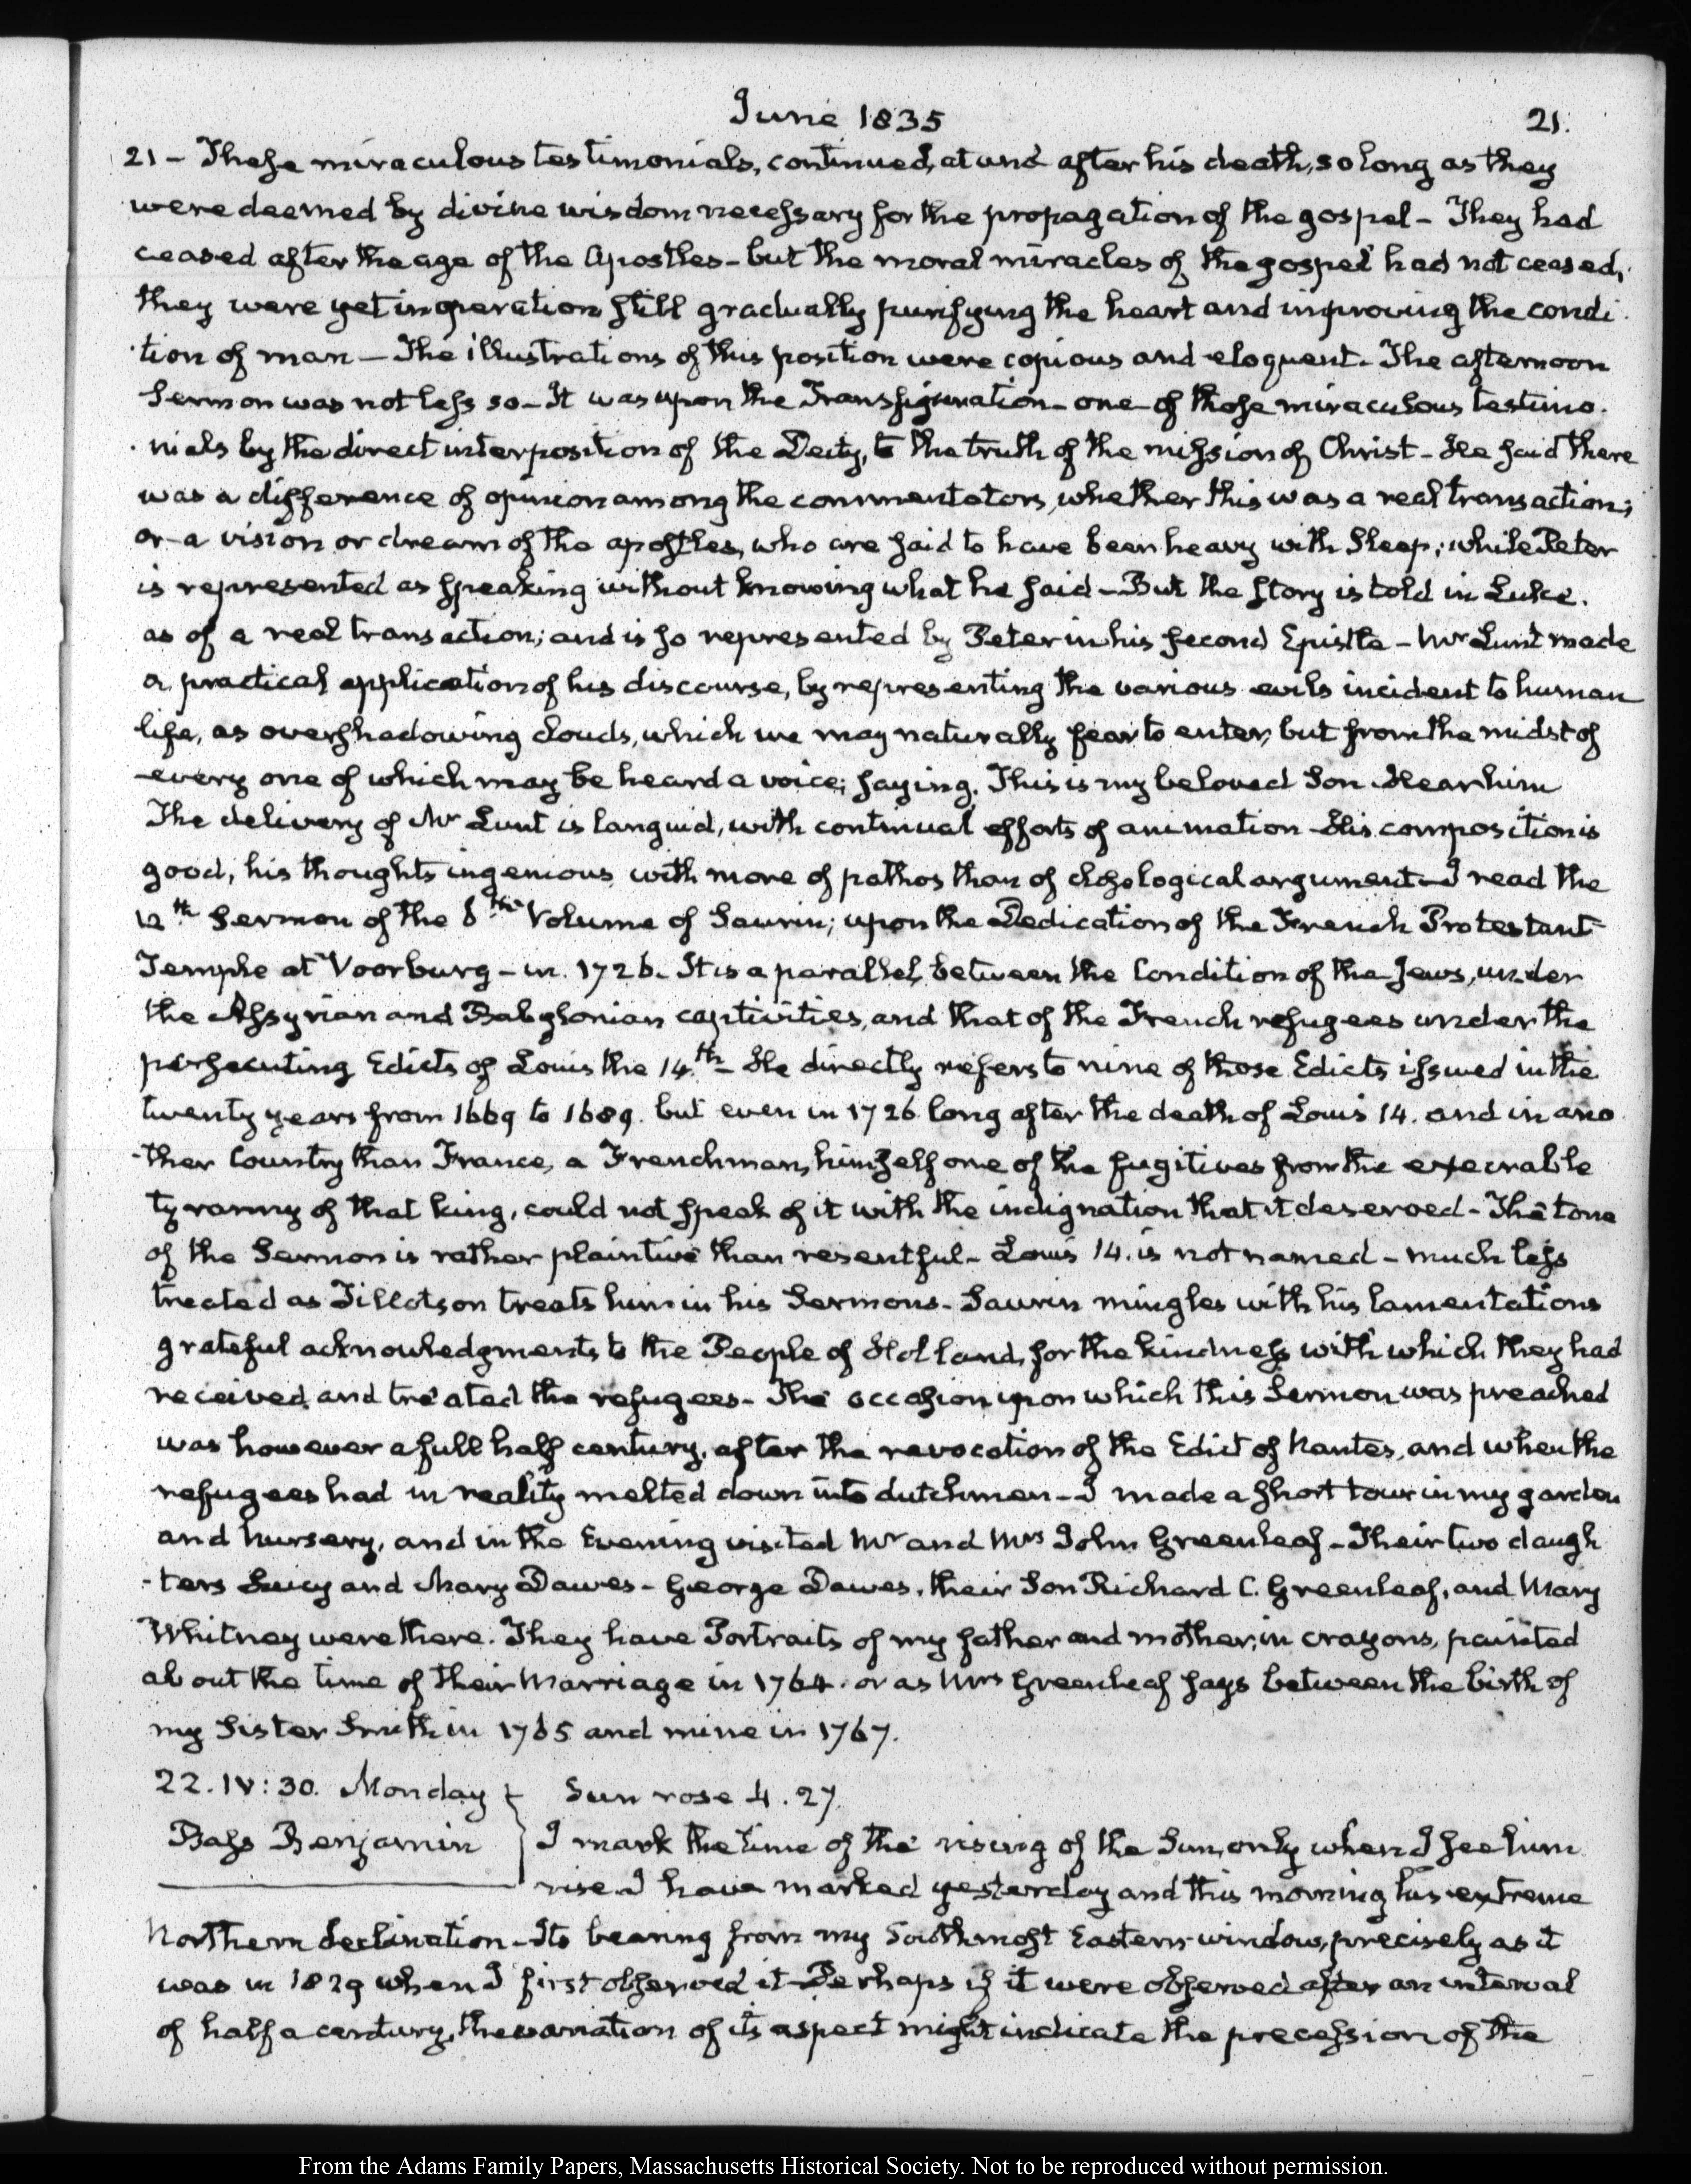 June 1835
21.
21 – These miraculous testimonials, continued, at and after his death, so long as they
were deemed by divine wisdom necessary for the propagation of the gospel – They had
ceased after the age of the Apostles – but the moral miracles of the gospel had not ceased,
they were yet in operation still gradually purifying the heart and improving the condi
tion of man – The illustrations of this position were copious and eloquent – The afternoon
Sermon was not less so – It was upon the Transfiguration – one of those miraculous testimo-
nials by the direct interposition of the Deity, to the truth of the mission of Christ – He said there
was a difference of opinion among the commentators, whether this was a real transaction;
or a vision or dream of the apostles, who are said to have been heavy with Sleep; while Peter
is represented as speaking without knowing what he said – But the story is told in Luke.
as of a real transaction; and is so represented by Peter in his second Epistle – Mr Lunt made
a practical application of his discourse, by representing the various evils incident to human
life, as overshadowing clouds, which we may naturally fear to enter, but from the midst of
every one of which may be heard a voice; saying. This is my beloved Son. Hear him
The delivery of Mr Lunt is languid, with continual efforts of animation – His composition is
good, his thoughts ingenious, with more of pathos than of argument – I read the
12th Sermon of the 8th Volume of Saurin; upon the Dedication of the French Protestant
Temple at Voorburg – in 1726 – It is a parallel, between the Condition of the Jews, under
the Assyrian and Babylonian captivities, and that of the French refugees under the
persecuting Edicts of Louis the 14th – He directly refers to nine of those Edicts issued in the
twenty years from 1669 to 1689. but even in 1726 long after the death of Louis 14. and in ano
-ther Country than France, a Frenchman, himself one of the fugitives from the execrable
tyranny of that king, could not speak of it with the indignation that it deserved – The tone
of the Sermon is rather plaintive than resentful – Louis 14. is not named – much less
treated as Tillotson treats him in his Sermons – Saurin mingles with his lamentations
grateful acknowledgments to the People of Holland, for the kindness with which they had
received and treated the refugees – The occasion upon which this Sermon was preached
was however a full half century, after the revocation of the Edict of Nantes, and when the
refugees had in reality melted down into dutchmen – I made a short tour in my garden
and nursery, and in the Evening visited Mr and Mrs John Greenleaf – Their two daugh
-ters Lucy and Mary Dawes – George Dawes, their Son Richard C. Greenleaf, and Mary
Whitney were there. They have Portraits of my father and mother, in crayons, painted
about the time of their Marriage in 1764. or as Mrs Greenleaf says between the birth of
my Sister Smith in 1765 and mine in 1767.
22. IV:30. Monday } Sun rose 4.27.
Bass Benjamin } I mark the time of the rising of the Sun, only when I see him
rise. I have marked yesterday and this morning his extreme
Northern declination – Its bearing from my Southmost Eastern window, precisely as it
was in 1829 when I first observed it – Perhaps if it were observed after an interval
of half a century, the variation of its aspect might indicate the precession of the
From the Adams Family Papers, Massachusetts Historical Society. Not to be reproduced without permission.